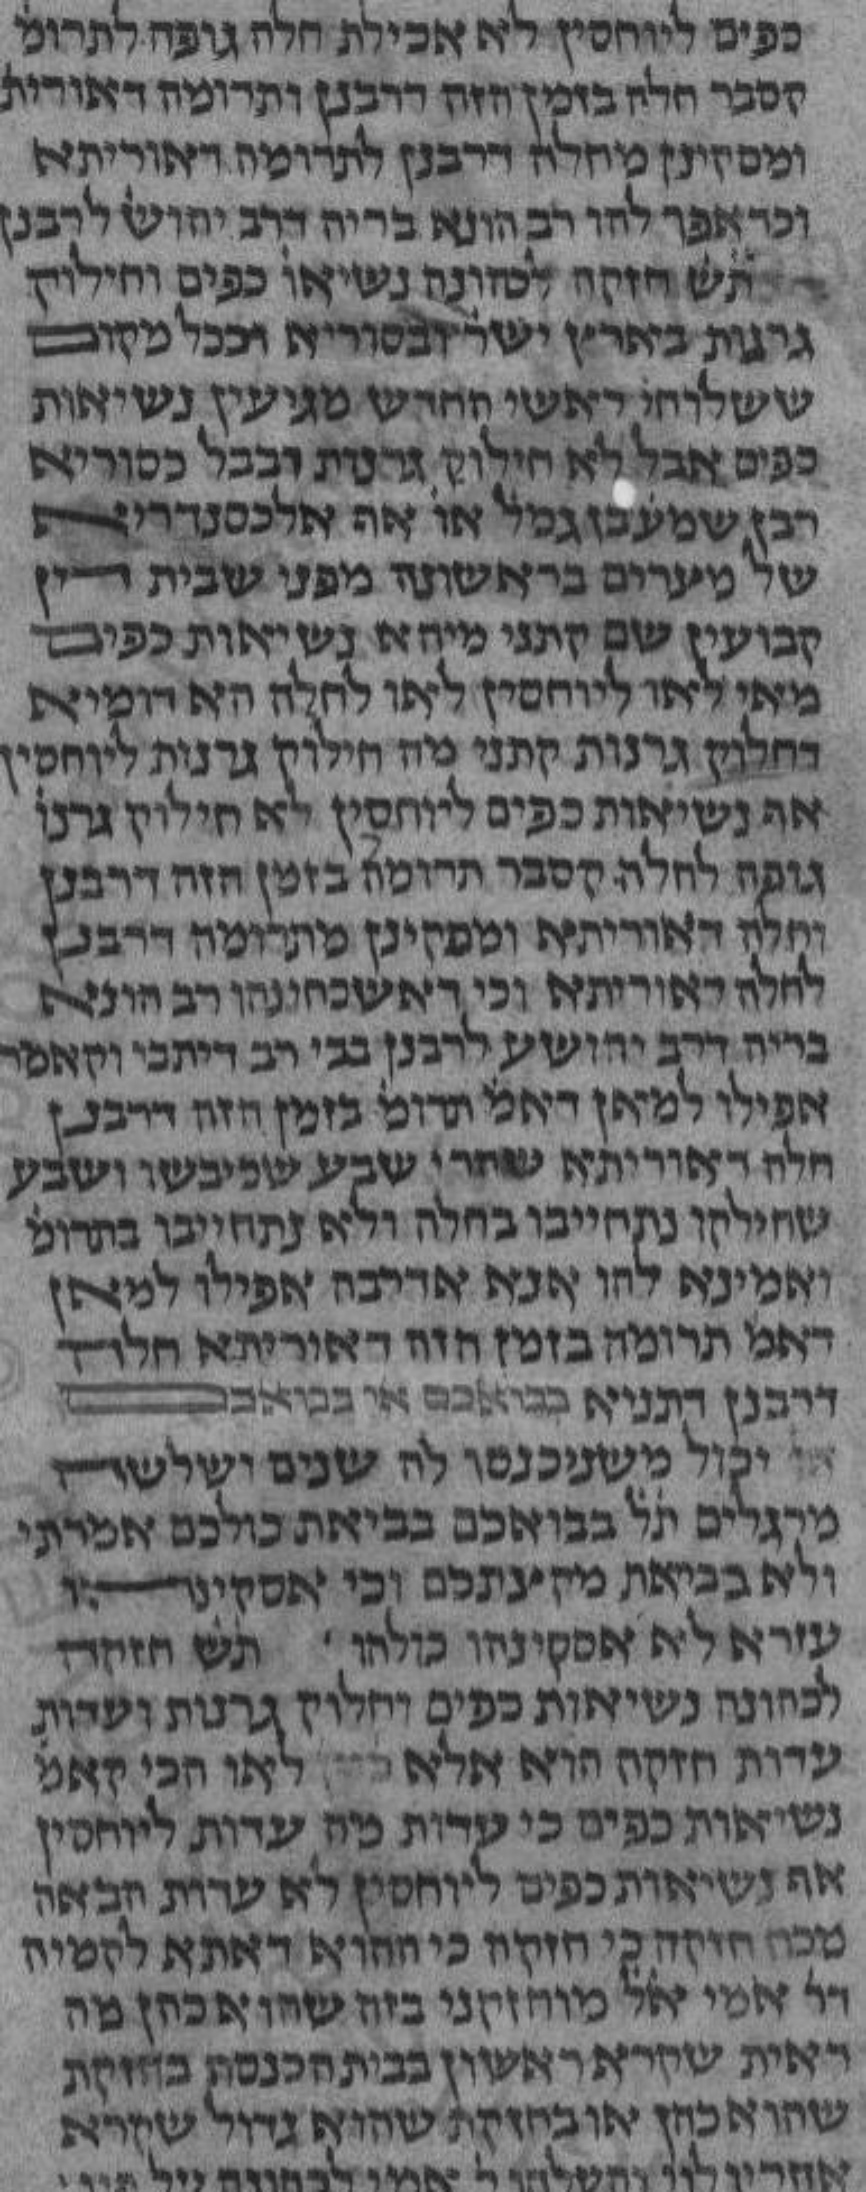 כפים ליוחסין לא אכילת חלה גופה לתרומ'
קסבר חלה בזמן הזה דרבנן ותרומה דאורית'
ומסקינן מחלה דרבנן לתרומה דאוריתא
וכדאפך להו רב הונא בריה דרב יהוש' לרבנן
ת"ש חזקה לכהונה נשיאו' כפים וחילוק
גרנות בארץ ישר' ובסוריא ובכל מקום
ששלוחי ראשי החדש מגיעין נשיאות
כפים אבל לא חילוק גרנות ובבל כסוריא
רבן שמע' בן גמל' או' אף אלכסנדריא
של מצרים בראשונה מפני שבית דין
קבועין שם קתני מיהא נשיאות כפים
מאי לאו ליוחסין לאו לחלה הא דומיא
דחלוק גרנות קתני מה חילוק גרנות ליוחסין
אף נשיאות כפים ליוחסין לא חילוק גרנו'
גופה לחלה קסבר תרומה בזמן הזה דרבנן
וחלה דאוריתא ומסקינן מתרומה דרבנן
לחלה דאוריתא וכי דאשכחינהו רב הונא
בריה דרב יהושע לרבנן בבי רב דיתבי וקאמר
אפילו למאן דאמ' תרומ' בזמן הזה דרבנן
חלה דאוריתא שהרי שבע שכיבשו ושבע
שחילקו נתחייבו בחלה ולא נתחייבו בתרומ'
ואמינא להו אנא אדרבה אפילו למאן
דאמ' תרומה בזמן הזה דאוריתא חלה
דרבנן דתניא בבואכם או בבואכם
יכול משניכנסו לה שנים ושלשה
מרגלים ת"ל בבואכם בביאת כולכם אמרתי
ולא בביאת מקצתכם וכי אסקינהו
עזרא לא אסקינהו כולהו ' ת"ש חזקה
לכהונה נשיאות כפים וחלוק גרנות ועדות
עדות חזקה הוא אלא לאו הכי קאמ'
נשיאות כפים כי עדות מה עדות ליוחסין
אף נשיאות כפים ליוחסין לא עדות הבאה
מכח חזקה כי חזקה כי ההוא דאתא לקמיה
דר' אמי א"ל מוחזקני בזה שהוא כהן מה
ראית שקרא ראשון בבית הכנסת בחזקת
שהוא כהן או בחזקת שהוא גדול שקרא
אחריו לוי והעלהו ר' אמי לכהונה על פיו